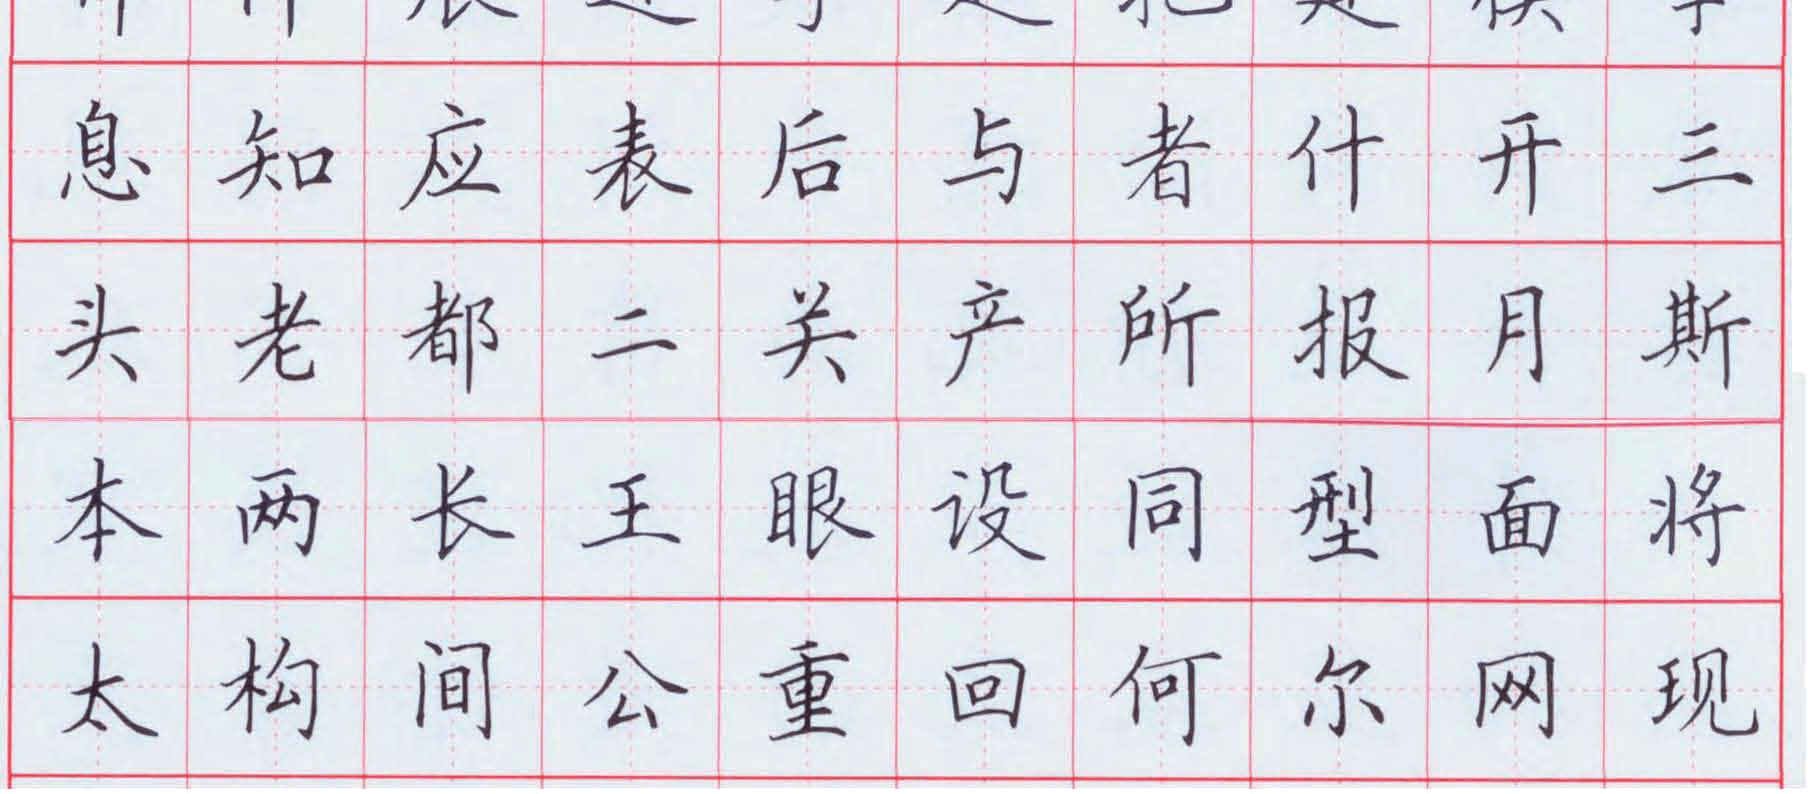 息知应表后与者什开三
头老都二关产所报月斯
本两长王眼设同型面将
太构间公重回何尔网现